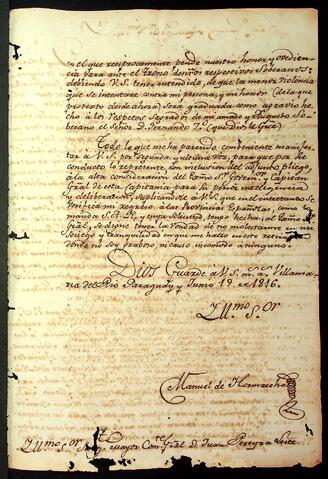 en el que reciprocamente pende nuestro honor y obedien-
cia para ante el trono de nros respectivos Soberanos:
debiendo V.S. tener entendido, de que la menor violencia
que se intentare contra mi persona, y mi honor (de la que
protesto desde ahora) sera graduada como agravio he-
cho a los respetos Sagrados de mi amado y Augusto So-
berano el Señor D. Fernando 7º (que Dios le Gue)
Todo lo que me ha parecido combeniente manifes-
tar à V.S. por segunda y ultima vez, para que por su
conducto lo represente, con inclusion del adjunto pliego
à la alta consideracion del Exmo Sor Govern.or y Capitan
Gral de esta Capitania para su pronta intelig.encia
y deliberacion, suplicandole à V.S. que en el entretanto se
verifica mi regreso à las Provincias Españolas, como
manda S.A.R., y cuya solicitud, tengo hecha, al Exmo
Gral, se digne tener la bondad de no molestarme en mi
sosiego y tranquilidad en que me hallo en este retiro,
donde no soy gravoso, ni causo incomodo à ninguno.
Dios Guarde à V.S. m.s a.s Villa Ma-
ria del Rio Paraguay y Junio 19. de 1816.
Yllmo Sor
Manuel de Hormaechea
Yllmo Sor Sarg.to mayor Com.te Gral D. Juan Pereyra Leite